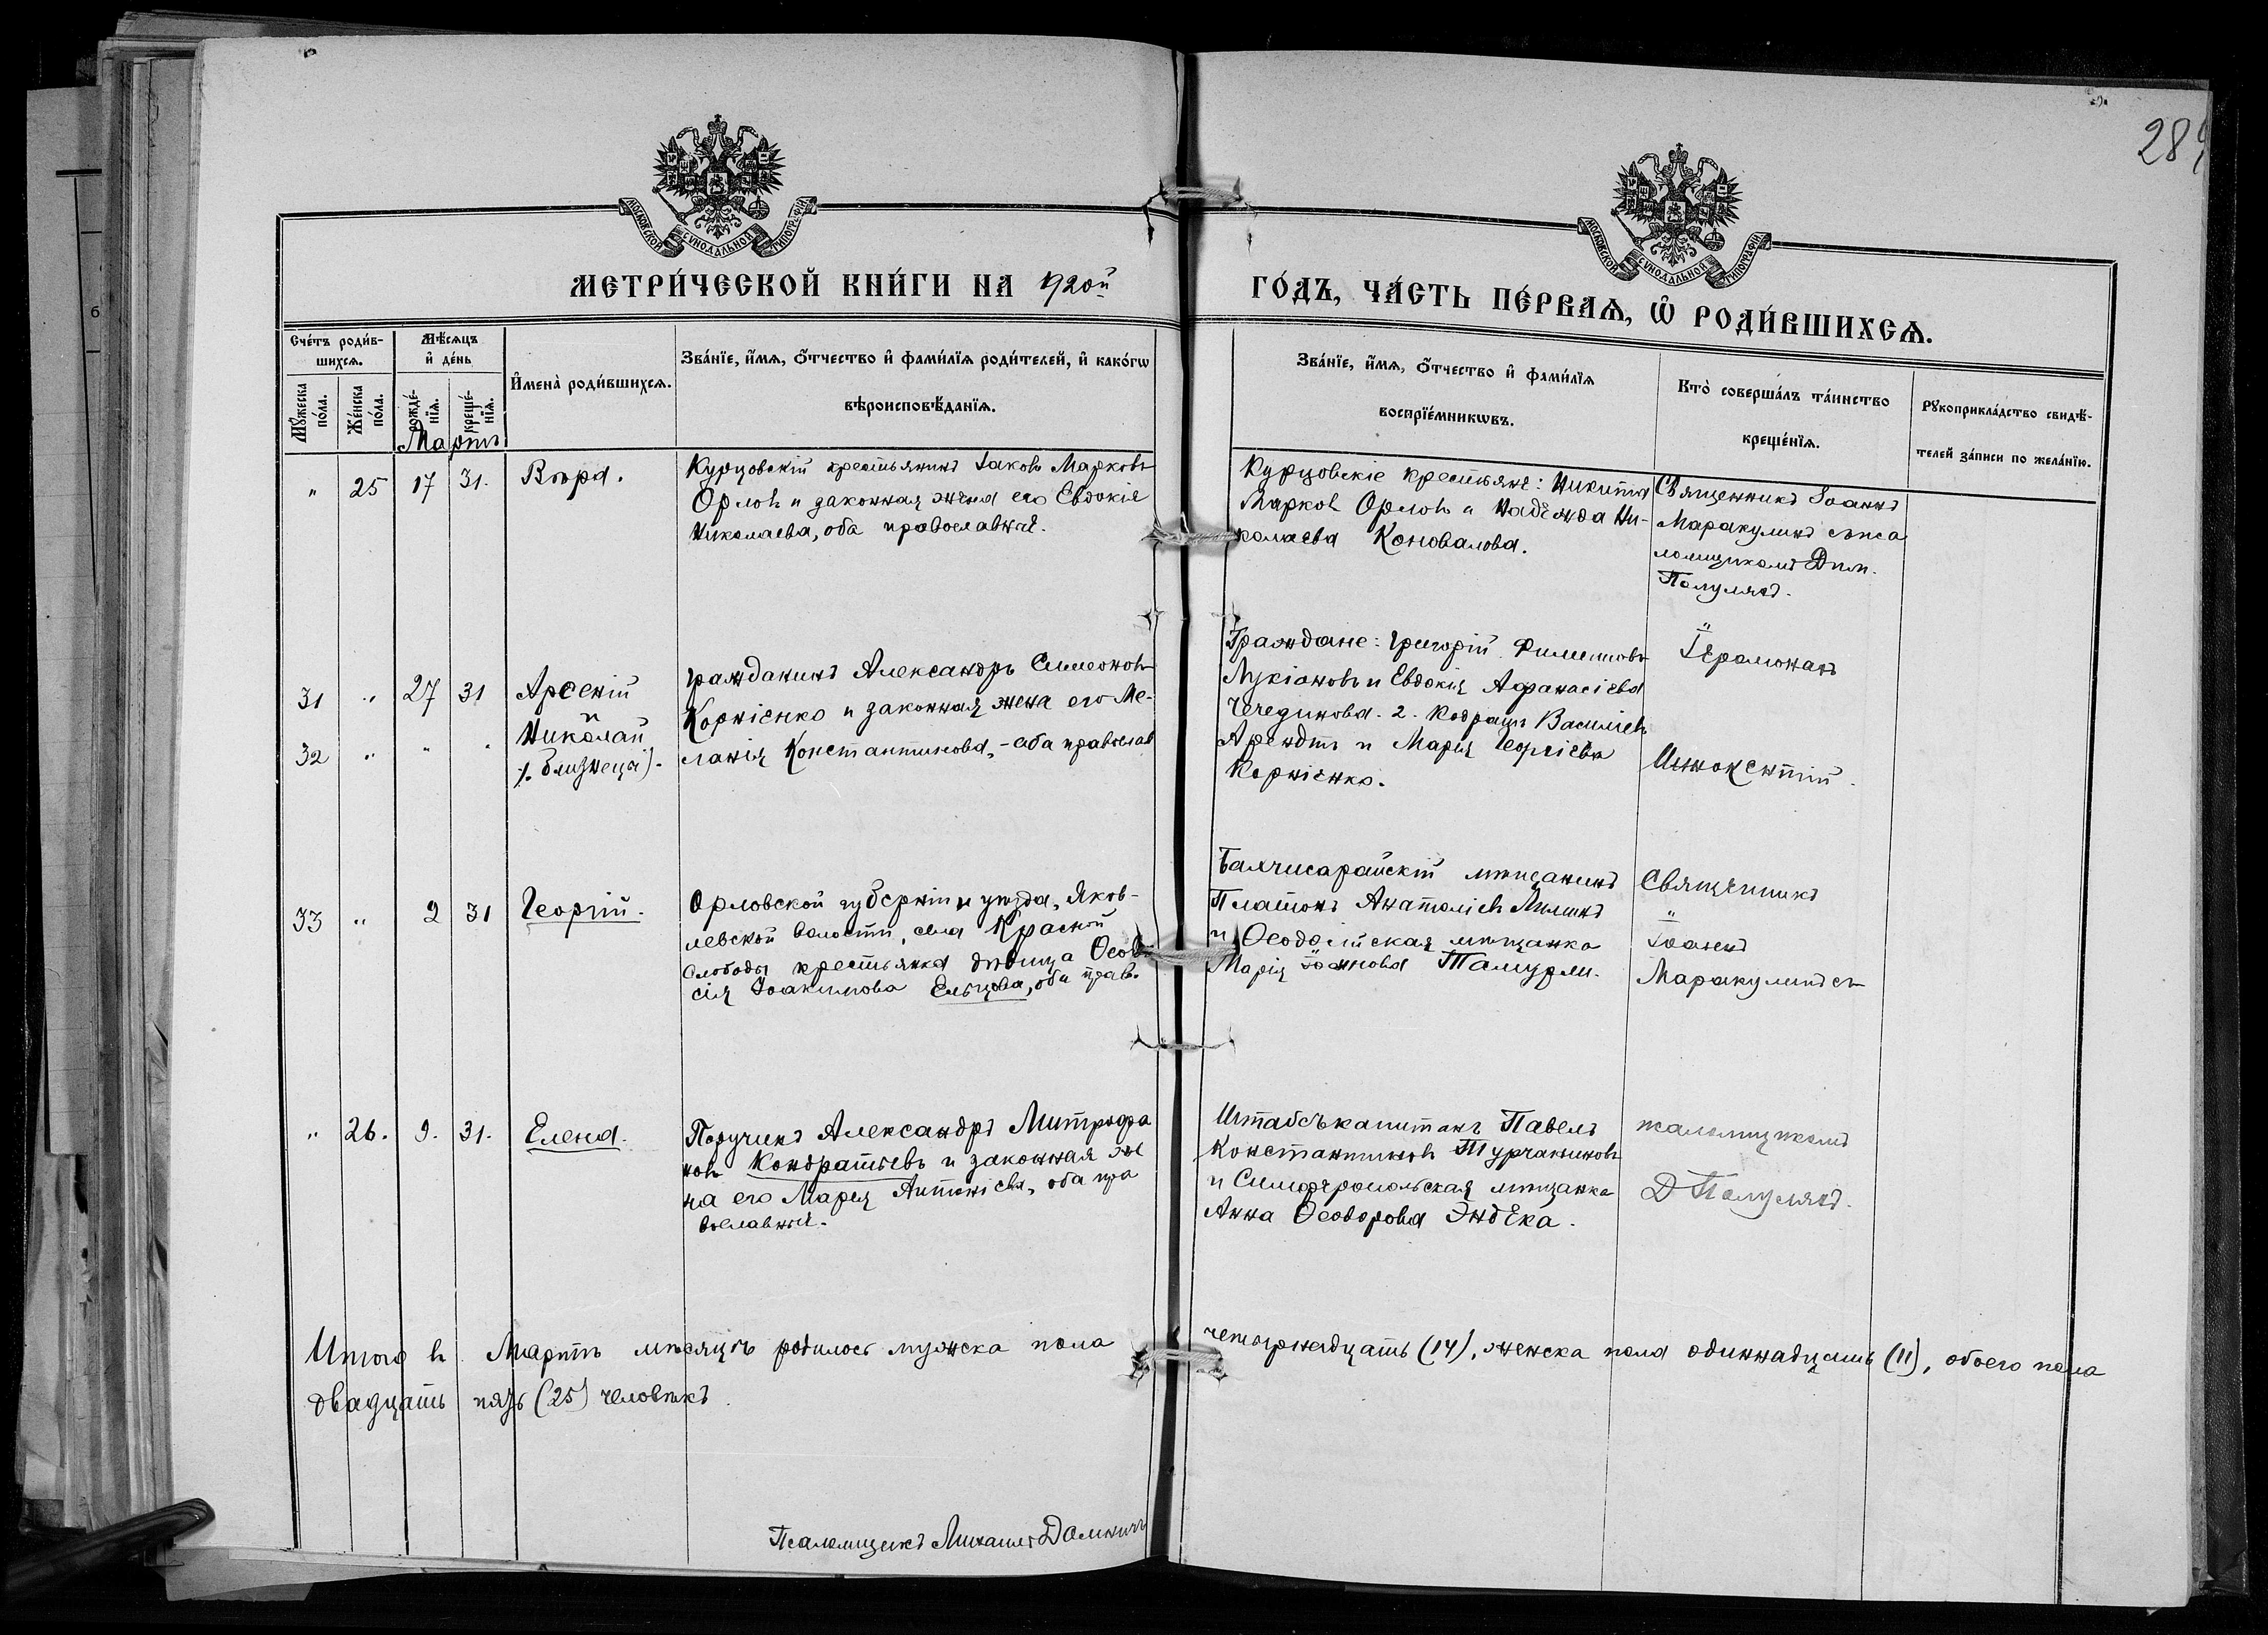 289
МОСКОВСКОЙ СУНОДАЛЬНОЙ ТИПОГРАФІИ
МОСКОВСКОЙ СУНОДАЛЬНОЙ ТИПОГРАФІИ
МЕТРИ́ЧЕСКОЙ КНИ́ГИ НА 1920й
ГО́ДЪ, ЧА́СТЬ ПЕ́РВАѦ, Ѡ҆ РОДИ́ВШИХСѦ.
Сче́тъ роди́в-
шихсѧ.
Мꙋ́жеска по́ла.
Же́нска по́ла.
Мѣ́сѧцъ
и҆ де́нь
рожде́-
нїѧ.
креще́-
нїѧ.
Мартъ
И҆мена̀ роди́вшихсѧ.
Зва́нїе, и҆́мѧ, ѻ҆́тчество и҆ фами́лїѧ роди́телей, и҆ како́гѡ
вѣроисповѣ́данїѧ.
Зва́нїе, и҆́мѧ, ѻ҆́тчество и҆ фами́лїѧ
воспрїе́мникѡвъ.
Кто̀ соверша́лъ та́инство
креще́нїѧ.
Рꙋкоприкла́дство свидѣ́-
телей за́писи по жела́нїю.
" 25 17 31. Вѣра.
Курцовскій крестьянинъ Іаковъ Марковъ
Орловъ и законная жена его Евдокія
Николаева, оба православныя.
Курцовскіе крестьяне: Никита
Марковъ Орловъ и Надежда Ни-
колаева Коновалова.
Священникъ Іоаннъ
Маракулинъ съ пса
ломщикомъ Дим.
Полуляхъ.
31 " 27 31 Арсеній
и
32 " " " Николай
(близнецы).
Гражданинъ Александръ Симеоновъ
Корніенко и законная жена его Ме-
ланія Константинова, - оба православ
Граждане: Григорій Филипповъ
Лукіановъ и Евдокія Афанасіева
Чечедикова. 2. Кодратъ Василіевъ
Арендтъ и Марія Георгіева
Корніенко.
Іеромонахъ
Иннокентій.
33 " 2 31 Георгій.
Орловской губерніи и уѣзда, Яков-
левской волости, села Красной
Слободы крестьянка дѣвица Ѳеодо
сія Іоакимова Ельцова, оба прав.
Бахчисарайскій мѣщанинъ
Платонъ Анатоліевъ Милинъ
и Ѳеодосійская мѣщанка
Марія Іоаннова Тамурли.
Священникъ
Іоаннъ
Маракулинъ съ
" 26. 9. 31. Елена.
Поручикъ Александръ Митрофа
новъ Кондратьевъ и законная же
на его Марія Антоніева, оба пра
вославные.
Штабсъ капитанъ Павелъ
Константиновъ Турчаниновъ
и Симферопольская мѣщанка
Анна Ѳеодорова Эндека.
псаломщикомъ
Д Полуляхъ.
Итого въ Мартѣ мѣсяцѣ родилось мужска пола
четырнадцать (14), женска пола одиннадцать (11), обоего пола
двадцать пять (25) человѣкъ
Псаломщикъ Михаилъ Домничъ